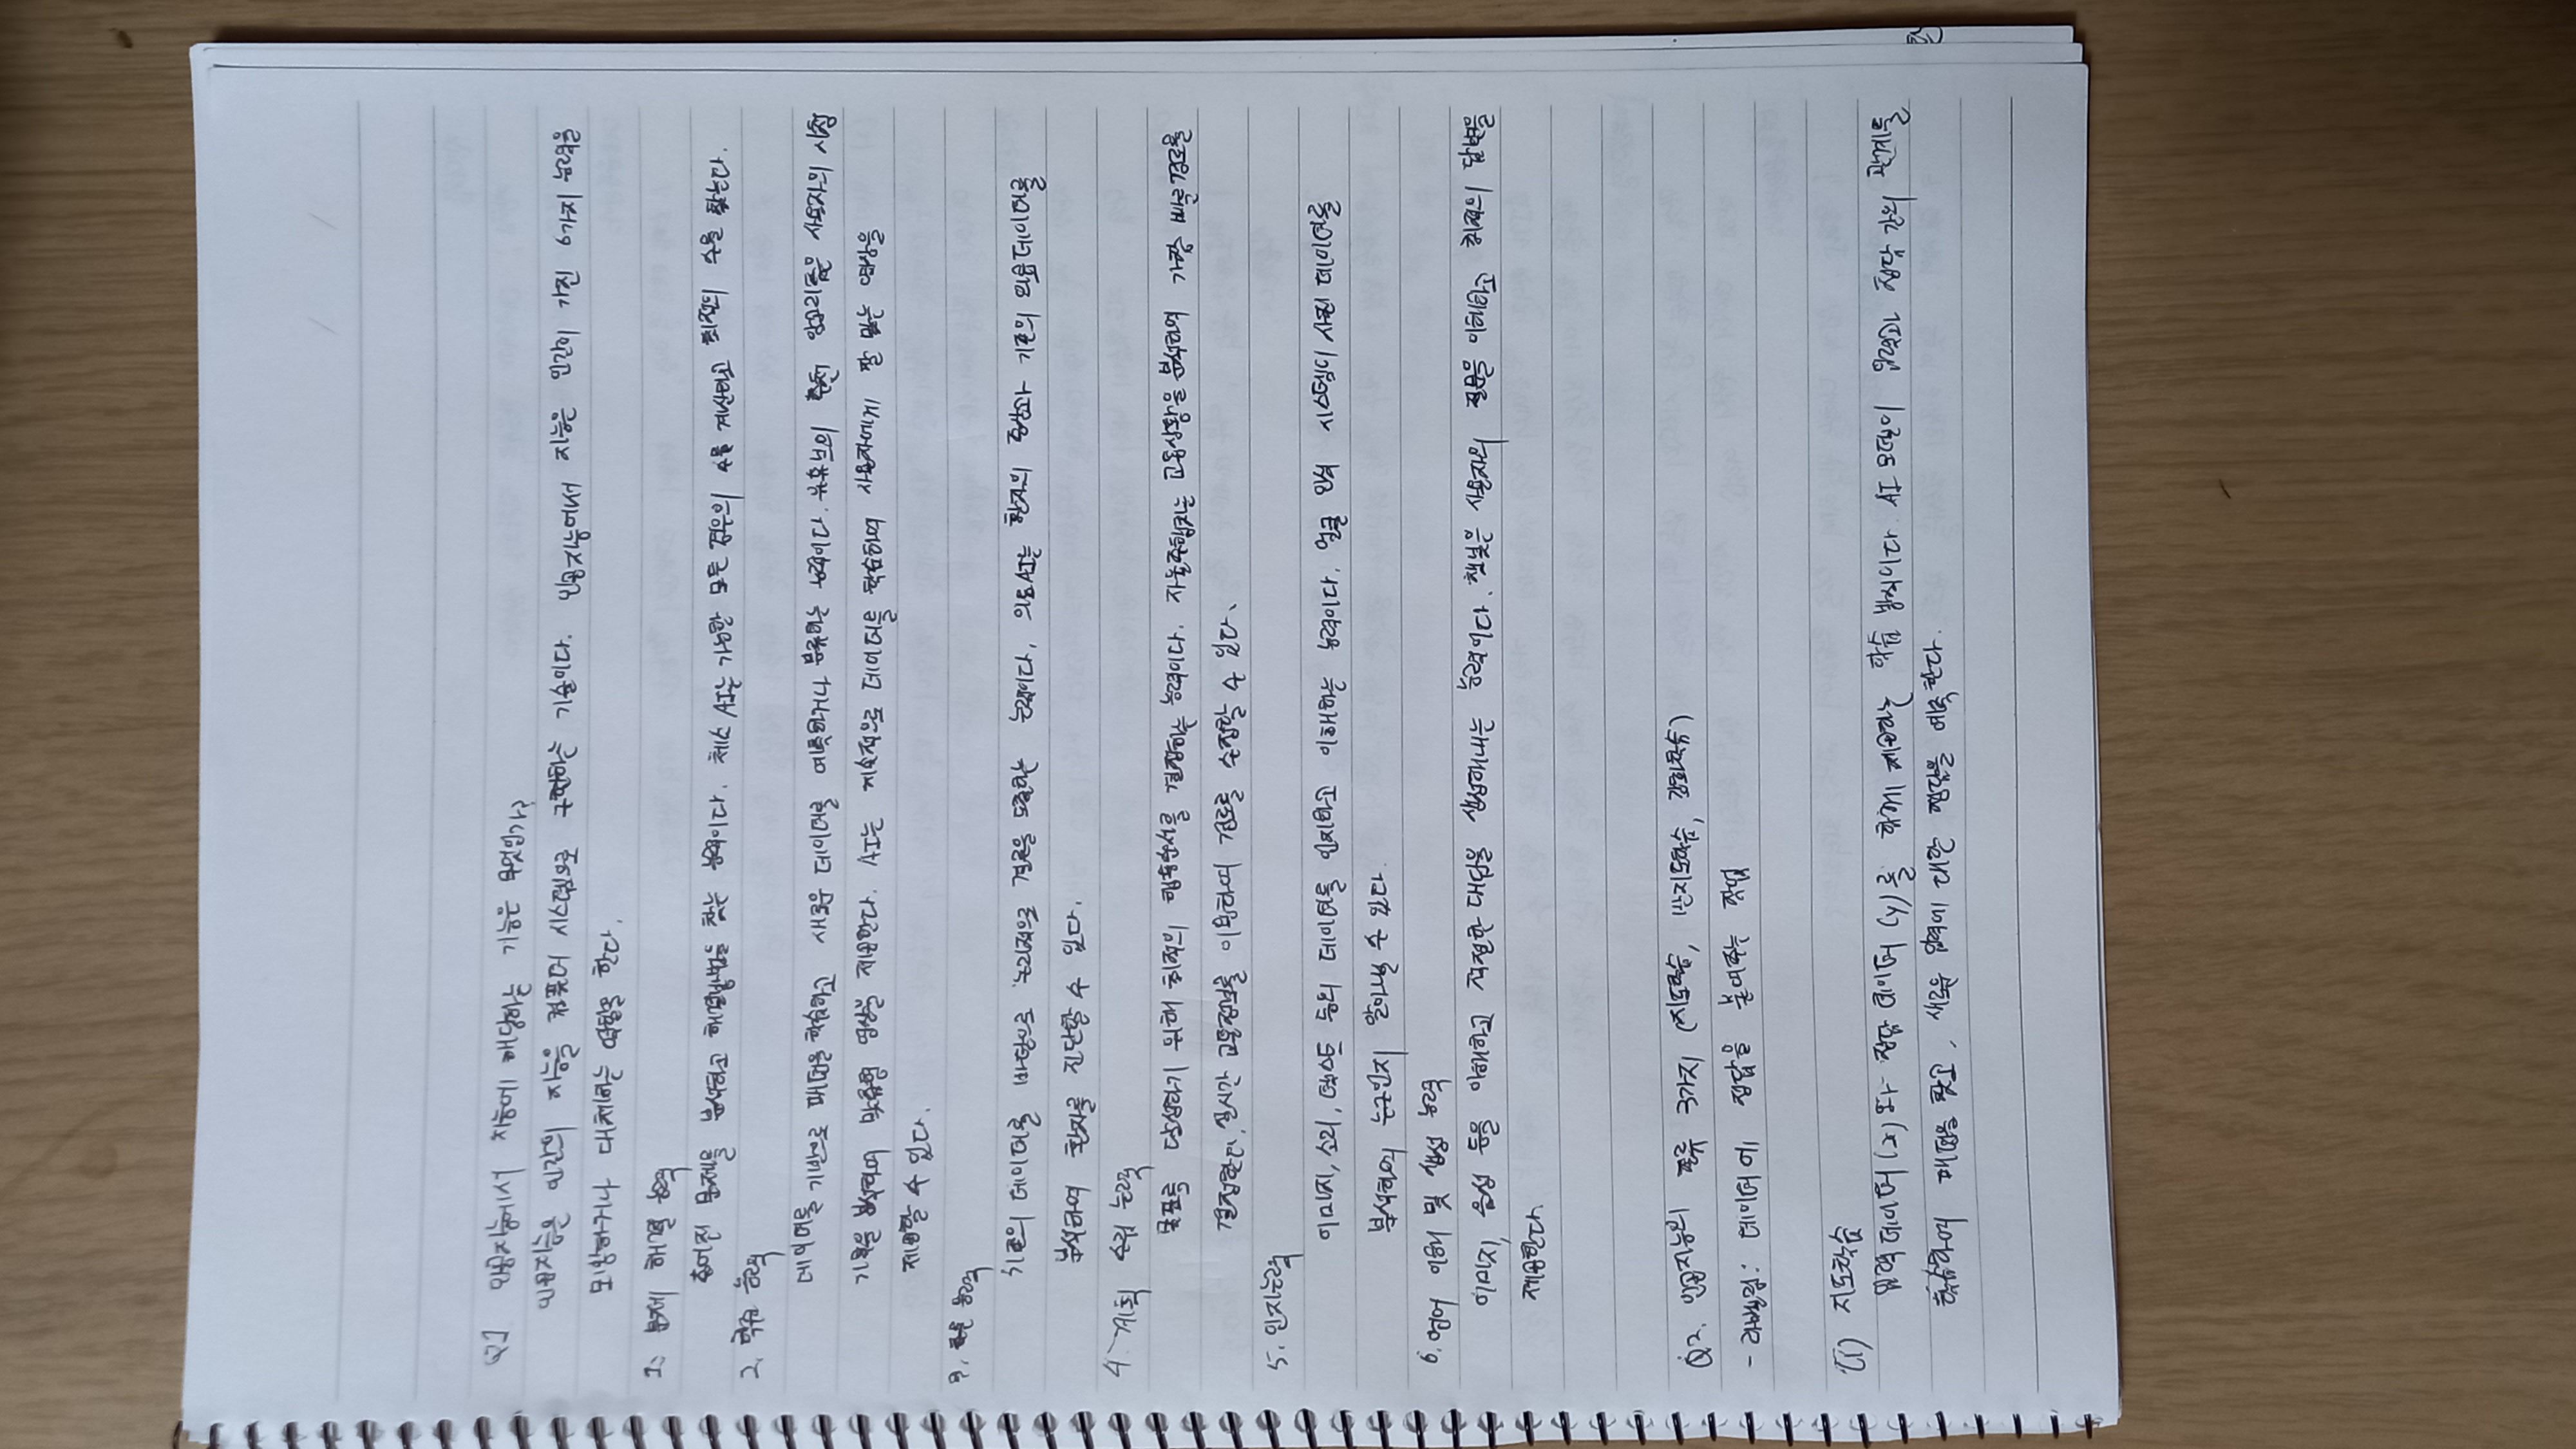 Q1 인공지능에서 지능에 해당하는 기능은 무엇인가?
인공지능은 인간의 지능을 컴퓨터 시스템으로 구현하는 기술이다. 인공지능에서 지능은 인간이 가진 6가지 능력을
모방하거나 대체하는 역할을 한다.
1. 문제 해결 능력
주어진 문제를 분석하고 해결방법을 찾는 능력이다. 체스 AI는 가능한 모든 경우의 수를 계산하고 최적의 수를 찾는다.
2. 학습 능력
데이터를 기반으로 패턴을 학습하고 새로운 데이터를 예측하거나 분류하는 능력이다. 유튜브의 추천 알고리즘은 사용자의 시청
기록을 분석하여 맞춤형 영상을 제공한다. AI는 지속적으로 데이터를 학습하여 사용자에게 잘 맞는 영상을
제공할 수 있다.
3. 추론 능력
기존의 데이터를 바탕으로 논리적으로 결론을 도출하는 능력이다. 의료AI는 환자의 증상과 기존의 의료데이터를
분석하여 환자를 진단할 수 있다.
4. 계획 수립 능력
목표를 달성하기 위해 최적의 행동순서를 결정하는 능력이다. 자율주행차는 교통상황을 분석하여 가장 빠른 경로를
결정한다. 실시간 교통정보를 이용하여 경로를 수정할 수 있다.
5. 인지능력
이미지, 소리, 텍스트 등의 데이터를 인지하고 이해하는 능력이다. 얼굴 인식 시스템이 사진 데이터를
분석하여 누구인지 알아낼 수 있다.
6. 언어 이해 및 생성 능력
이미지, 음성 등을 이해하고 적절한 대답을 생성해내는 능력이다. 챗봇은 사용자의 질문을 이해하고 최적의 답변을
제공한다.
Q2. 인공지능의 종류 3가지 (지도학습, 반지도학습, 강화학습)
- 라벨링: 데이터에 정답을 붙여주는 작업
(1) 지도학습
입력 데이터(x)와 정답 데이터(y)를 함께 제공하는 학습 방식이다. AI 모델이 입력과 정답 간의 관계를
학습하여 패턴을 찾고, 새로운 입력에 대한 정답을 예측한다.